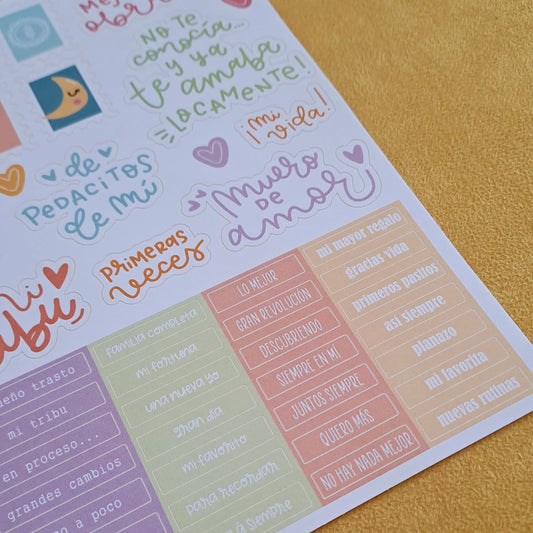 NO TE
CONOCÍA...
y ya
te amaba
LOCAMENTE!
¡mi
vida!
de
PEDACITOS
de mí
muero
DE
amor
PRIMERAS
veces
mi tribu
en proceso...
grandes cambios
a poco
familia completa
mi fortuna
una nueva yo
gran día
mi favorito
para recordar
siempre
LO MEJOR
GRAN REVOLUCIÓN
DESCUBRIENDO
SIEMPRE EN MÍ
JUNTOS SIEMPRE
QUIERO MÁS
NO HAY NADA MEJOR
mi mayor regalo
gracias vida
primeros pasitos
así siempre
planazo
mi favorita
nuevas rutinas